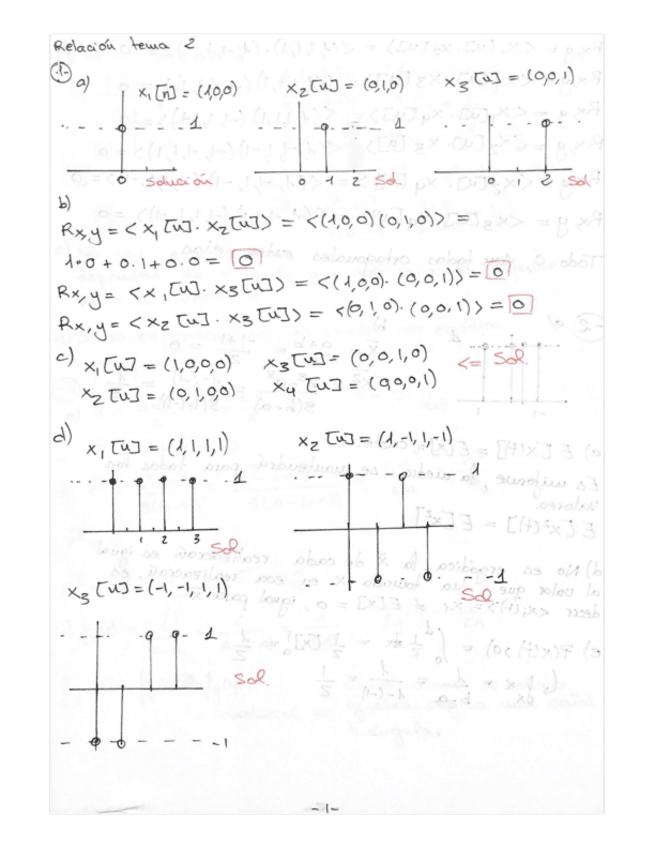 Relación tema 2
1- a) x₁[n] = (1,0,0) x₂[n] = (0,1,0) x₃[n] = (0,0,1)
1 1
0 Solución 0 1 2 Sol 0 1 2 Sol
b)
Rx,y = <x₁[n] · x₂[n]> = <(1,0,0)(0,1,0)> =
1·0 + 0·1 + 0·0 = 0
Rx,y = <x₁[n] · x₃[n]> = <(1,0,0) · (0,0,1)> = 0
Rx,y = <x₂[n] · x₃[n]> = <(0,1,0) · (0,0,1)> = 0
c) x₁[n] = (1,0,0,0) x₃[n] = (0,0,1,0) <= Sol.
x₂[n] = (0,1,0,0) x₄[n] = (0,0,0,1)
d) x₁[n] = (1,1,1,1) x₂[n] = (1,-1,1,-1)
1 1
1 2 3
Sol -1
Sol
x₃[n] = (-1,-1,1,1)
1
Sol.
-1
-1-